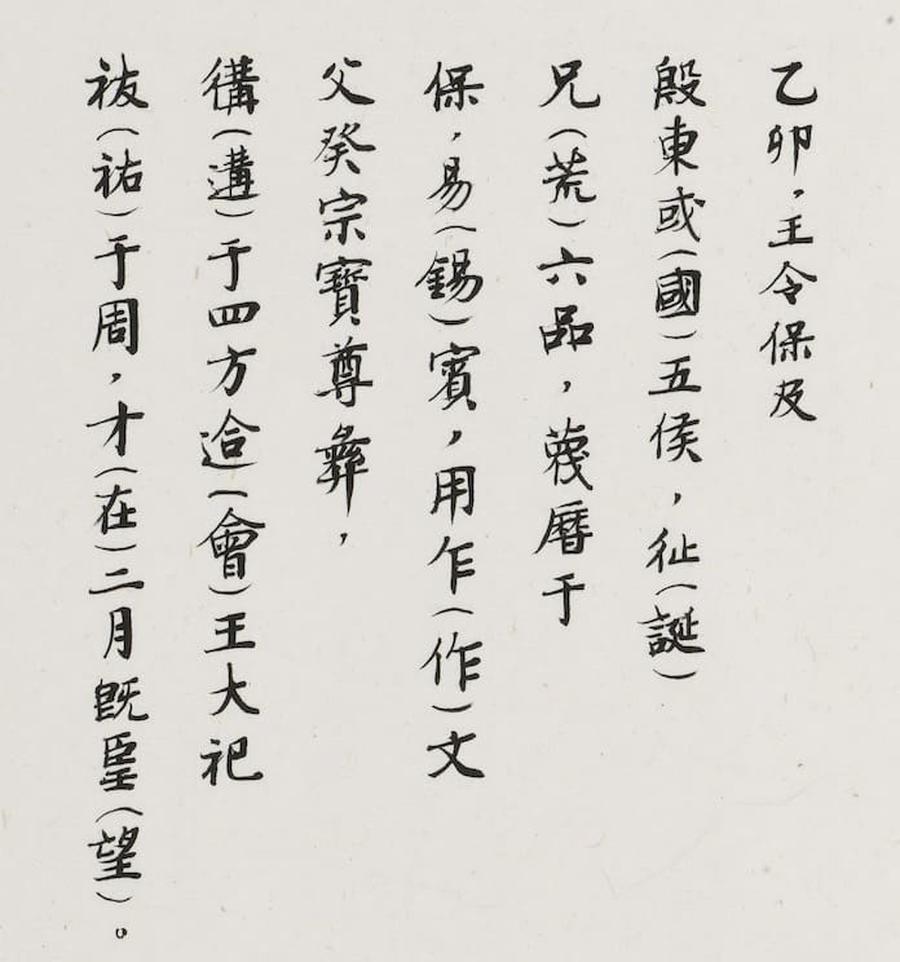 乙卯，王令保及
殷東或（國）五侯，㢟（誕）
兄（荒）六品，蔑曆于
保，易（錫）賓，用乍（作）文
父癸宗寶尊彝，
冓（遘）于四方迨（會）王大祀
祓（祐）于周，才（在）二月既朢（望）。